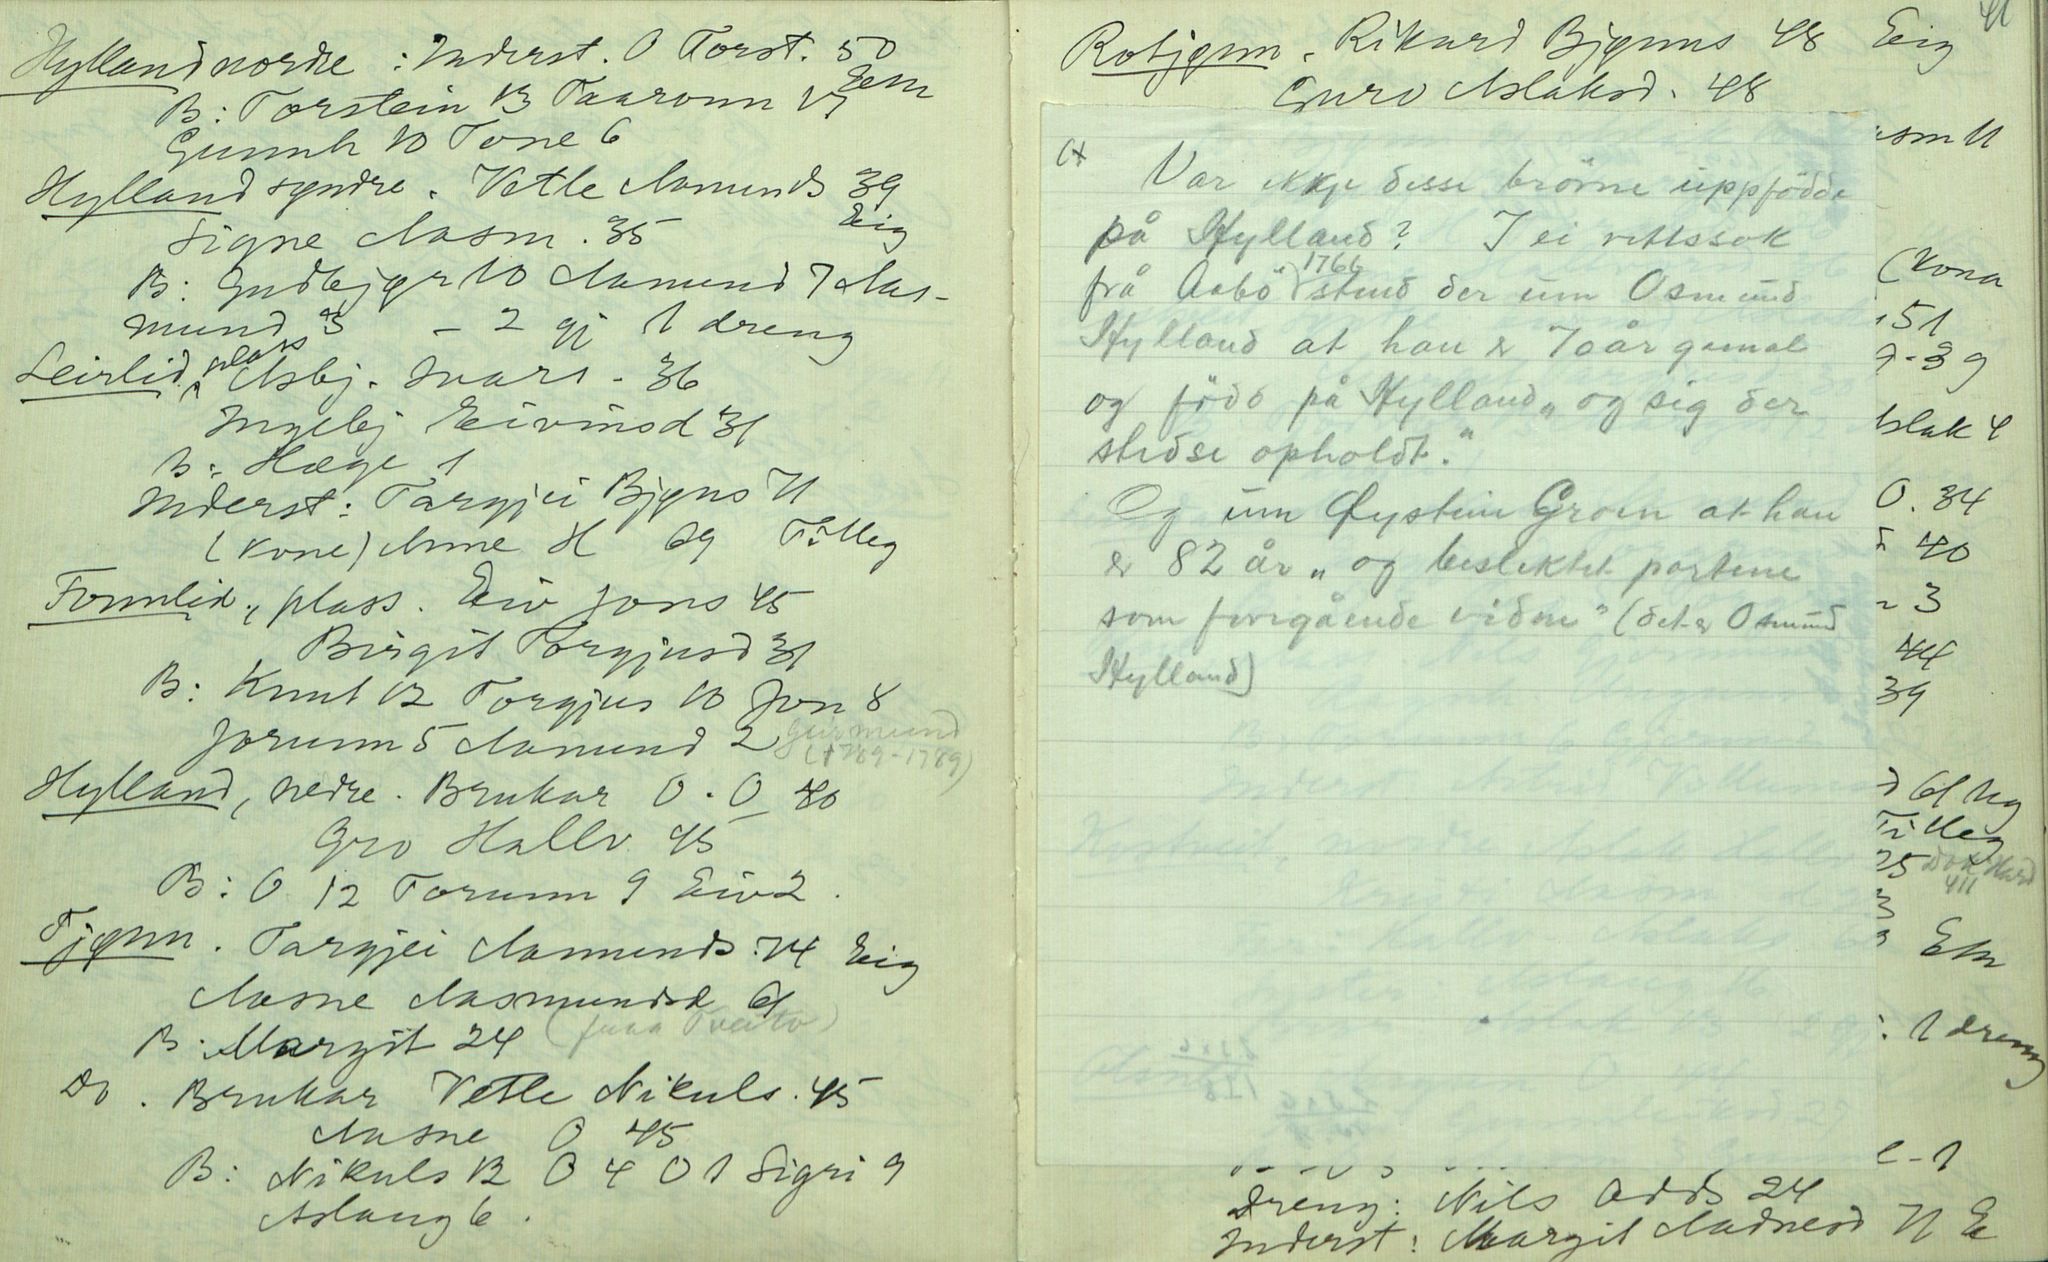 Hylland nordre : Inderst. O Torst. 50
Eem
B: Torstein 13 Taaronn 17
Gunnh 10 Tone 6
Hylland syndre . Vetle Aamunds 39
Eig
Signe Aasm . 35
B: Gudbjgr 10 Aamund 7 Aas-
mund 3 – 2 gj 1 dreng
Leirlid, plass Asbj. Ivars - 36
Ingebj Eivinsd 31
B: Hæge 1
Inderst: Targjei Bjgns 71
(kone) Anne H 69 Tilleg
Fonnlid, plass. Eiv Jons 45
Birgit Torgjusd 31
B: Knut 12 Torgjus 10 Jon 8
Jorunn 5 Aamund 2 Geirmund
(1789-1789)
Hylland, nedre. Brukar O. O 40
Gro Hallv. 45
B: O 12 Torunn 9 Eiv 2.
Tjønn. Targjei Aamunds. 74 Eig
Aasne Aasmundsd 61
B: Margit 24
Do . Brukar Vetle Nikuls. 45
Aasne O 45
B: Nikuls 12 O 4 O 1 Sigri 9
Aslaug 6.
41
Rotjønn. Rikard Bjønns 48 Eig
Guro Aslaksd. 48
Var ikkje desse brörne uppfödde
på Hylland? I ei rettssok
frå Aabö 1766 stend der um Osmund
Hylland at han er 70 år gamal
og född på Hylland „og sig der
stedse opholdt."
Og um Øystein Groen at han
er 82 år „og beslektet partene
som foregående vidne" (det er Osmund
Hylland)
asm 11
(kona
51
9-39
slak 4
O. 34
40
3
44
39
d 61 leg
Tilleg
25
411
Em
: 1 dreng
e - 1
Dreng: Nils Odds 24
Inderst: Margit Aadnesd 71 E